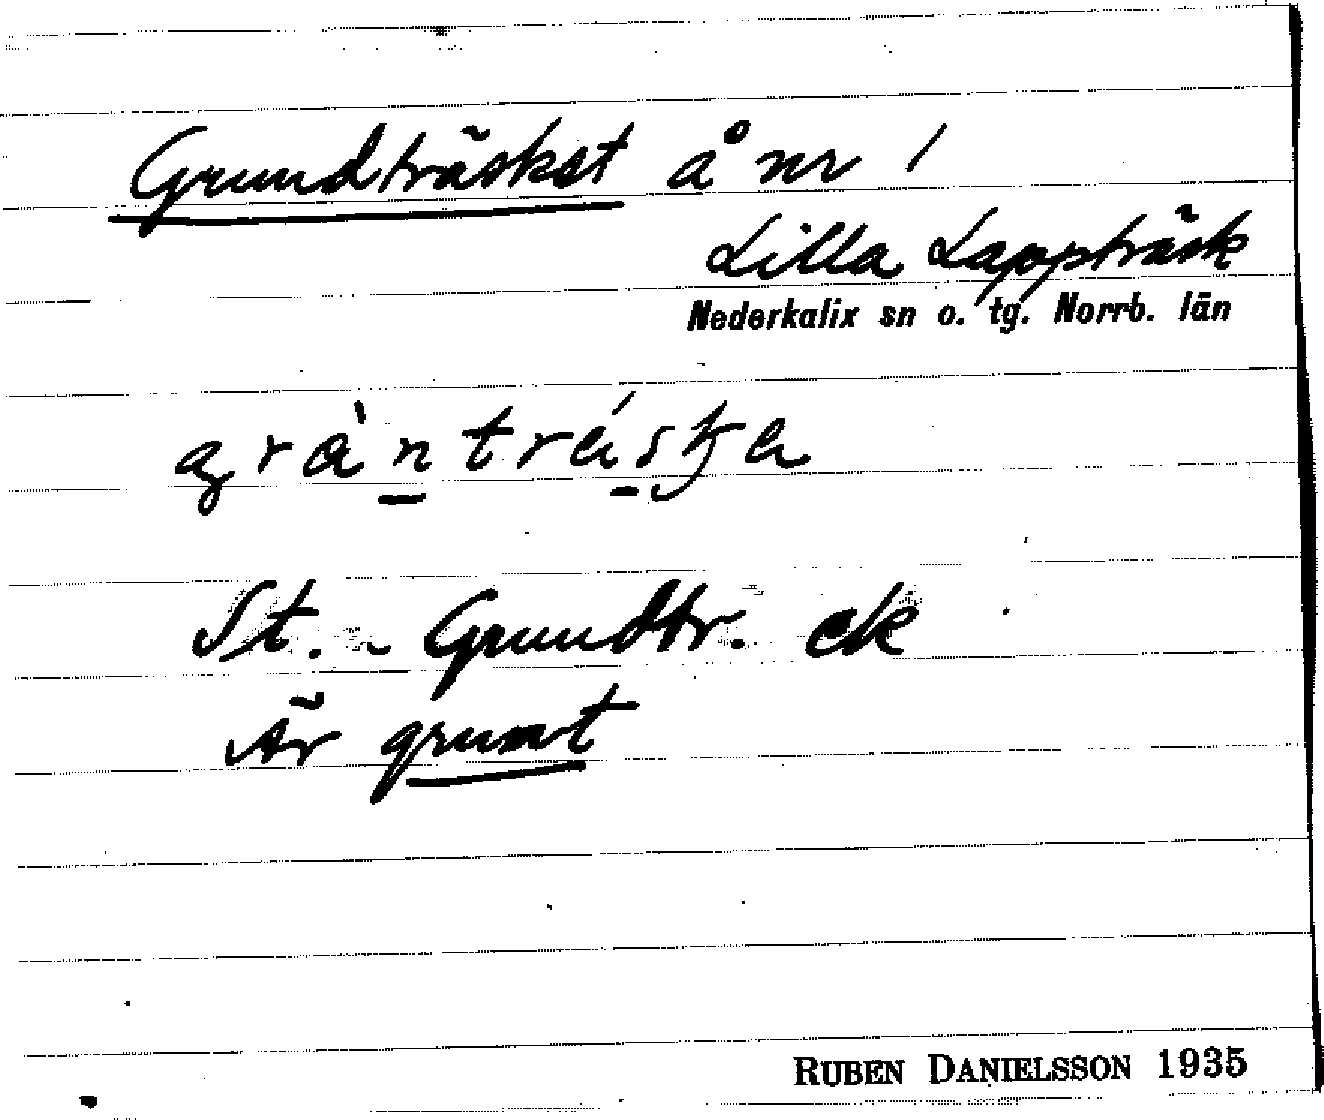 Grundträsket å nr 1
Lilla Lappträsk
Nederkalix sn o. tg. Norrb. län
St. - Grundtr. ek
Är grunt
RUBEN DANIELSSON 1935